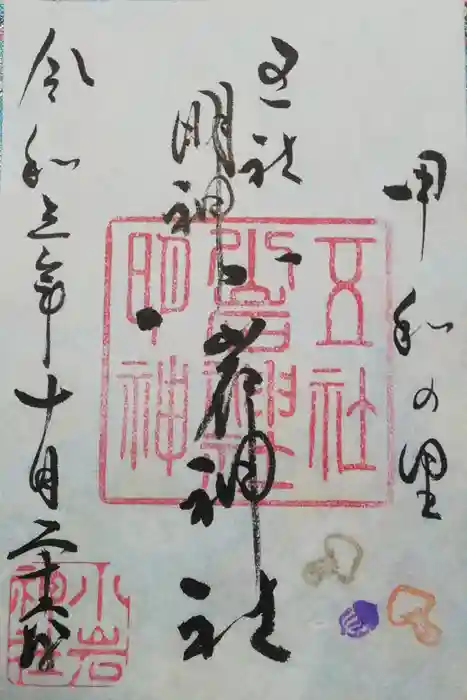 甲和の里
五社
明神
小岩神社
令和三年十月二十
五社
小岩神社
明神
小岩
神社